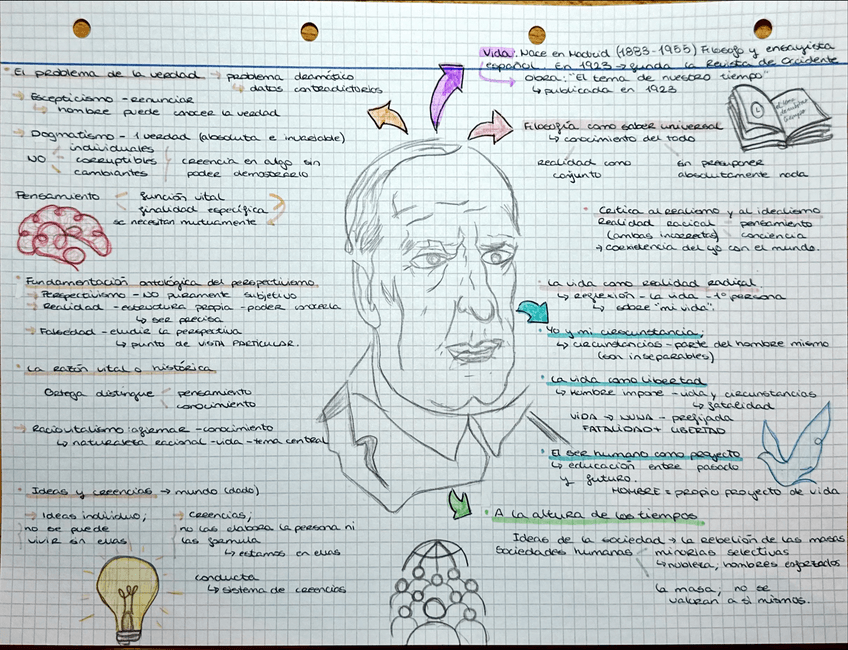 Vida: Nace en Madrid (1883-1955) Filósofo y ensayista
español. En 1923 → funda la Revista de Occidente
obra: "El tema de nuestro tiempo"
↳ publicada en 1923
• El problema de la verdad → problema dramático
↳ datos contradictorios
→ Escepticismo - renunciar
↳ hombre puede conocer la verdad
→ Dogmatismo - 1 verdad (absoluta e invariable)
individuales
NO corruptibles creencia en algo sin
cambiantes poder demostrarlo
Pensamiento función vital
finalidad específica
se necesitan mutuamente
• Fundamentación ontológica del perspectivismo.
→ Perspectivismo - NO puramente subjetivo
→ Realidad - estructura propia - poder conocerla
↳ ser precisa
→ Falsedad - eludir la perspectiva
↳ punto de VISTA PARTICULAR.
• La razón vital o histórica
Ortega distingue pensamiento
conocimiento
→ Raciovitalismo: afirmar - conocimiento
↳ naturaleza racional - vida - tema central
• Ideas y creencias → mundo (dado)
→ Ideas individuo;
no se puede
vivir sin ellas
→ creencias;
no las elabora la persona ni
las formula
↳ estamos en ellas
conducta
↳ sistema de creencias
Filosofía como saber universal
↳ conocimiento del todo
realidad como
conjunto
sin presuponer
absolutamente nada
el tema
de nuestro
tiempo
• Crítica al realismo y al idealismo
Realidad radical - pensamiento
(ambas incorrectas) conciencia
→ coexistencia del yo con el mundo.
• La vida como realidad radical
↳ reflexión - la vida - 1º persona
↳ sobre "mi vida".
• Yo y mi circunstancia;
↳ circunstancias - parte del hombre mismo
(son inseparables)
• La vida como libertad
↳ Hombre impone - vida y circunstancias
↳ fatalidad
VIDA → NUNCA - prefijada
FATALIDAD + LIBERTAD
• El ser humano como proyecto
↳ educación entre pasado
y futuro.
HOMBRE = propio proyecto de vida
• A la altura de los tiempos
Ideas de la sociedad → la rebelión de las masas
Sociedades humanas minorías selectivas
↳ nobleza, hombres esforzados
la masa; no se
valoran a sí mismos.